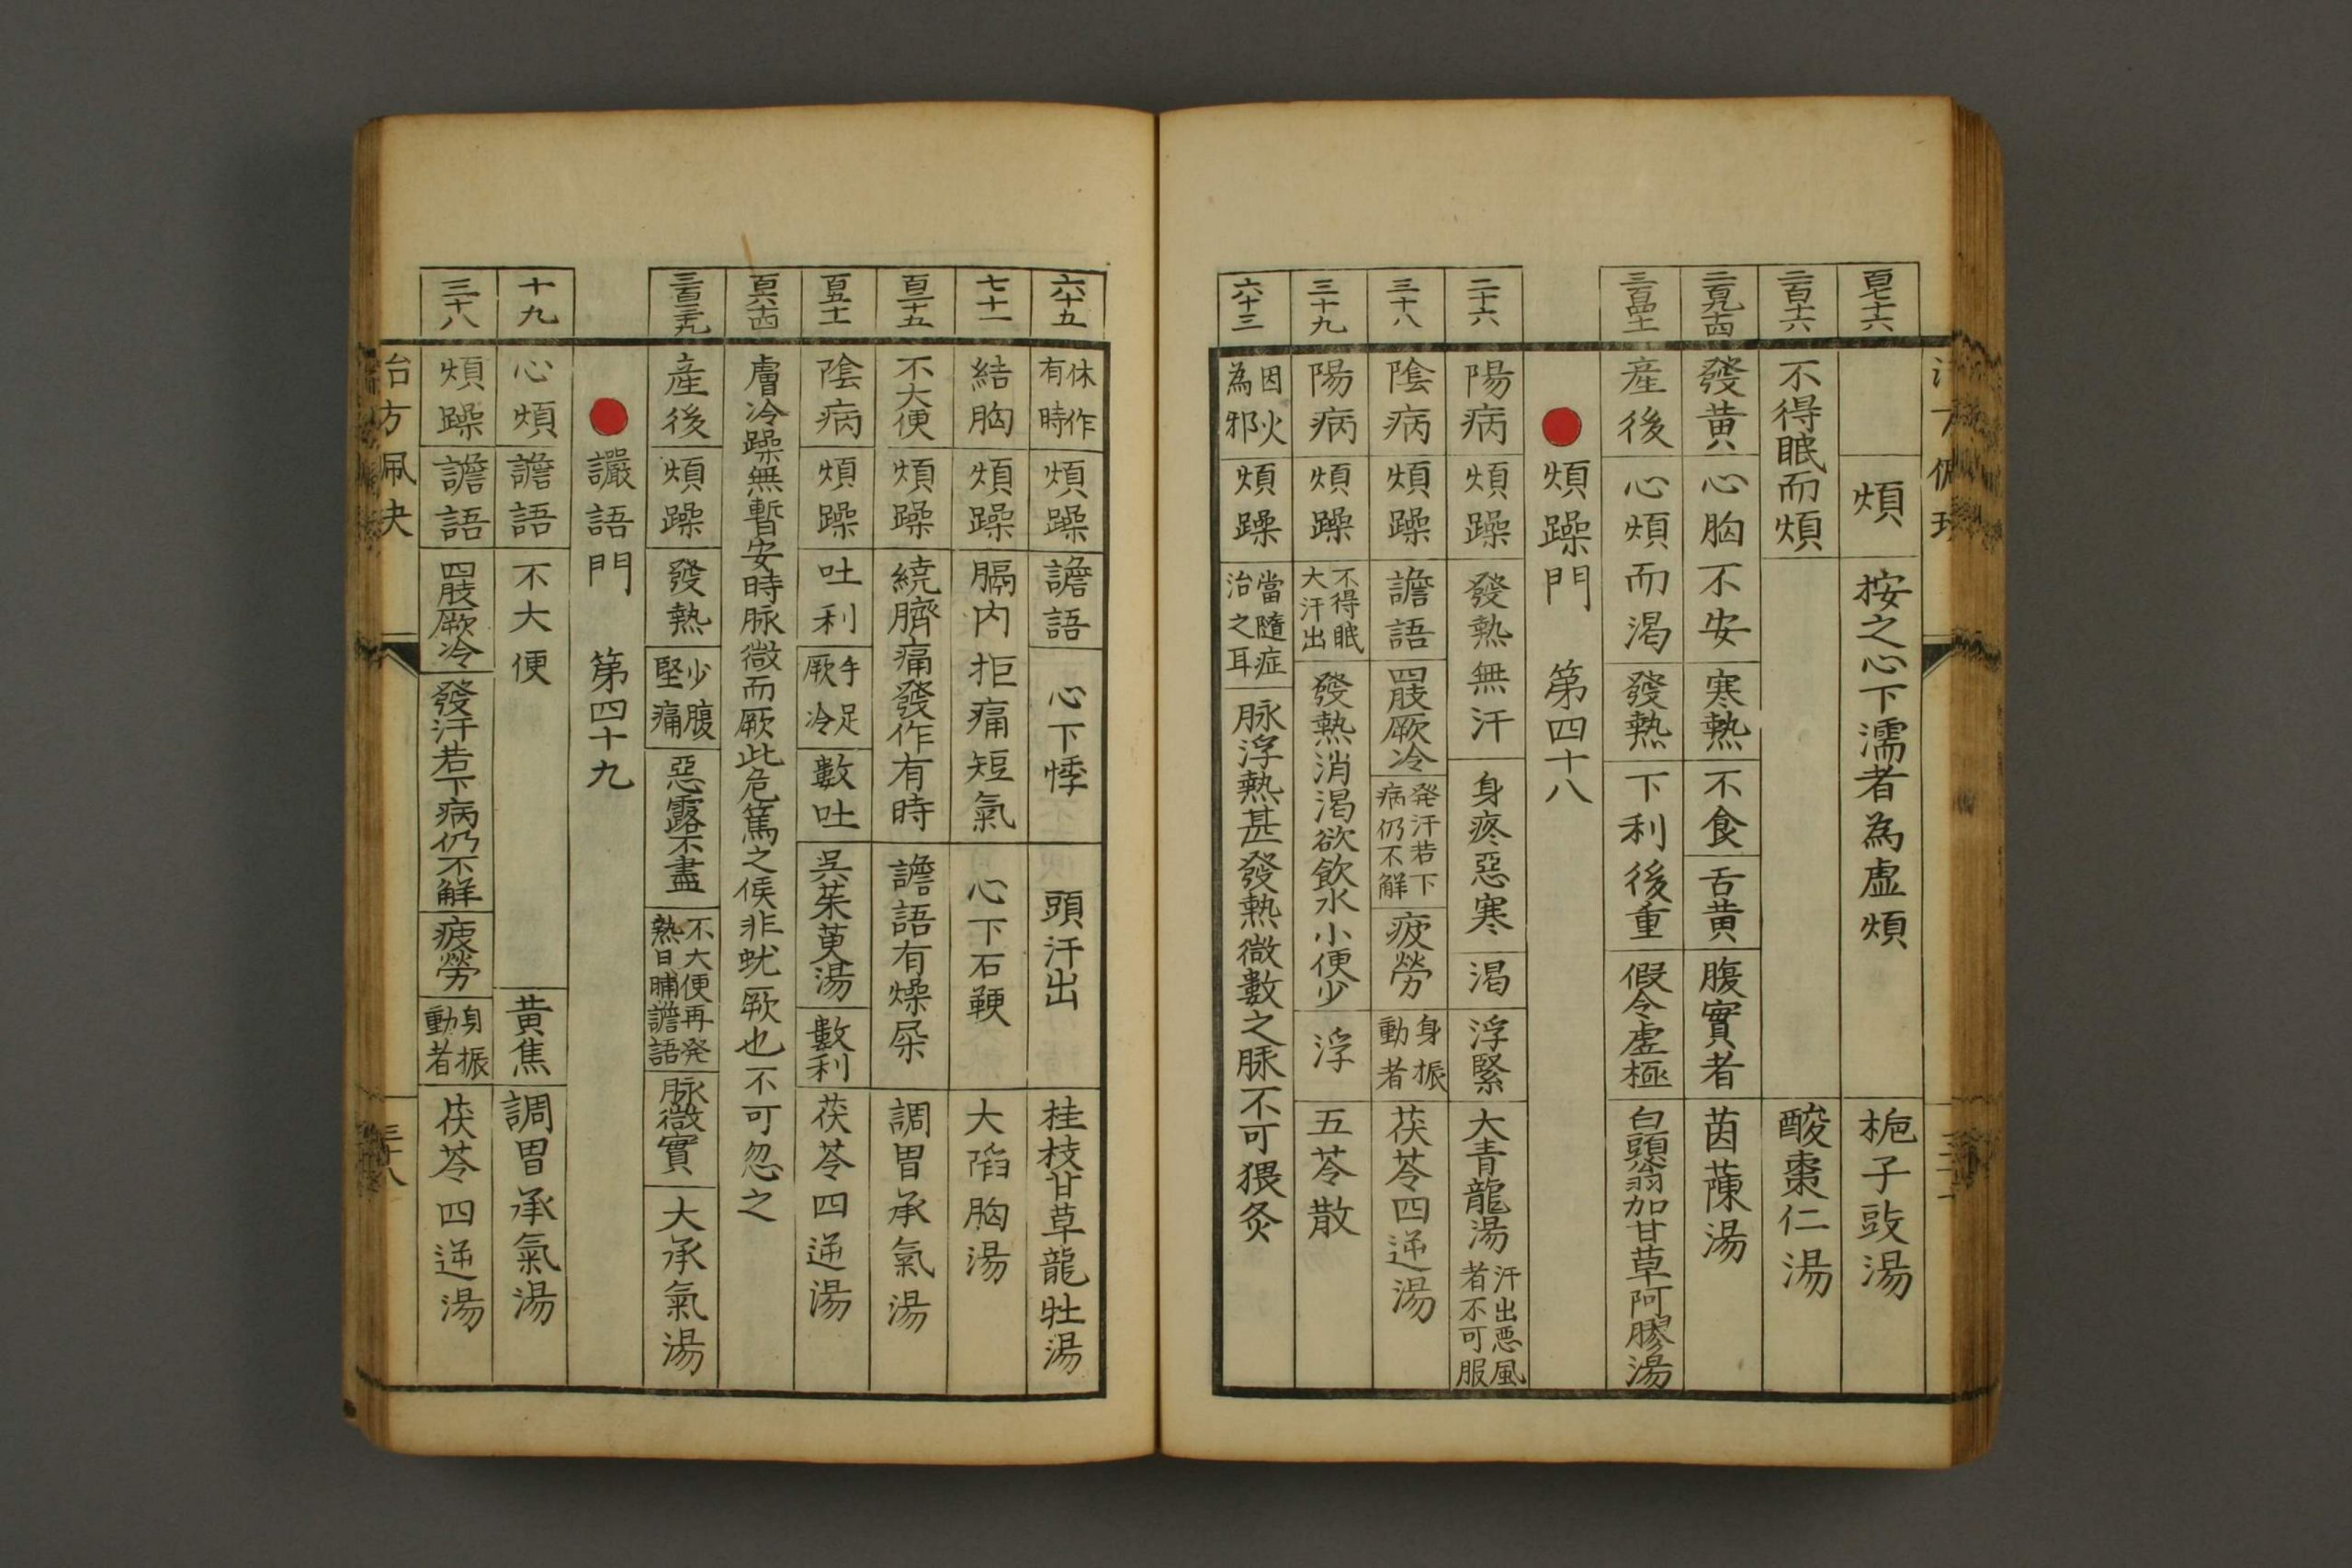 百七十六 煩 按之心下濡者為虛煩 梔子豉湯
二百十六 不得眠而煩 酸棗仁湯
二百九十四 發黃 心胸不安 寒熱 不食 舌黃 腹實者 茵蔯湯
產後 心煩而渴 發熱 下利後重 假令虛極 白頭翁加甘草阿膠湯
煩躁門 第四十八
二十六 陽病 煩躁 發熱無汗 身疼惡寒 渴 浮緊 大青龍湯 汗出悪風者不可服
三十八 陰病 煩躁 譫語 四肢厥冷 発汗若下病仍不解 疲勞 身振動者 茯苓四逆湯
三十九 陽病 煩躁 不得眠大汗出 發熱消渴欲飲水小便少 浮 五苓散
六十三 因火為邪 煩躁 當隨症治之耳 脉浮熱甚發熱微數之脉不可猥灸
六十五 休作有時 煩躁 譫語 心下悸 頭汗出 桂枝甘草龍牡湯
七十一 結胸 煩躁 膈内拒痛短氣 心下石鞕 大陷胸湯
百二十五 不大便 煩躁 繞臍痛發作有時 譫語有燥屎 調胃承氣湯
百五十一 陰病 煩躁 吐利 手足厥冷 數吐 吳茱萸湯 數利 茯苓四逆湯
百六十四 膚冷躁無暫安時脉微而厥此危篤之候非蚘厥也不可忽之
產後 煩躁 發熱 少腹堅痛 惡露不盡 不大便再発熱日晡譫語 脉微實 大承氣湯
讝語門 第四十九
十九 心煩 譫語 不大便 黃焦 調胃承氣湯
三十八 煩躁 譫語 四肢厥冷 發汗若下病仍不解 疲勞 身振動者 茯苓四逆湯